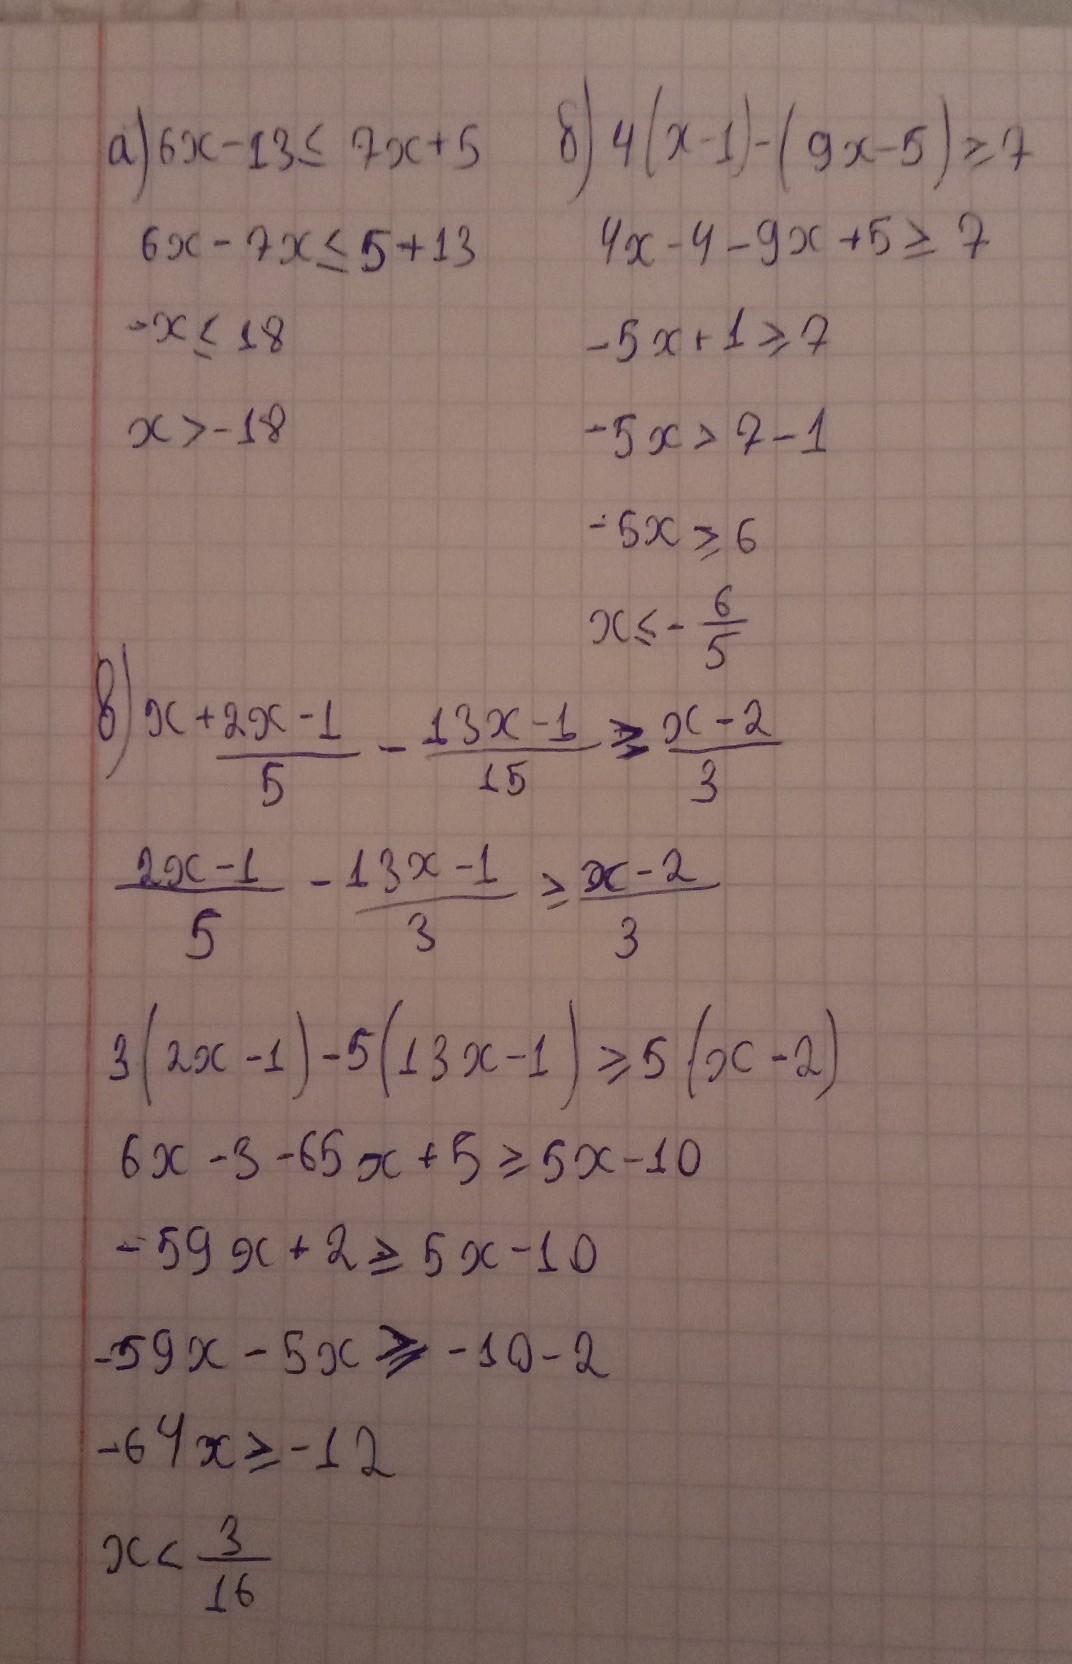 а) 6x-13≤ 7x+5
6x-7x≤5+13
-x≤18
x>-18
б) 4(x-1)-(9x-5)≥7
4x-4-9x+5≥7
-5x+1≥7
-5x>7-1
-5x≥6
x≤-6/5
в) x+2x-1/5 - 13x-1/15 ≥ x-2/3
2x-1/5 - 13x-1/3 ≥ x-2/3
3(2x-1)-5(13x-1)≥5(x-2)
6x-3-65x+5≥5x-10
-59x+2≥5x-10
-59x-5x≥-10-2
-64x≥-12
x<3/16